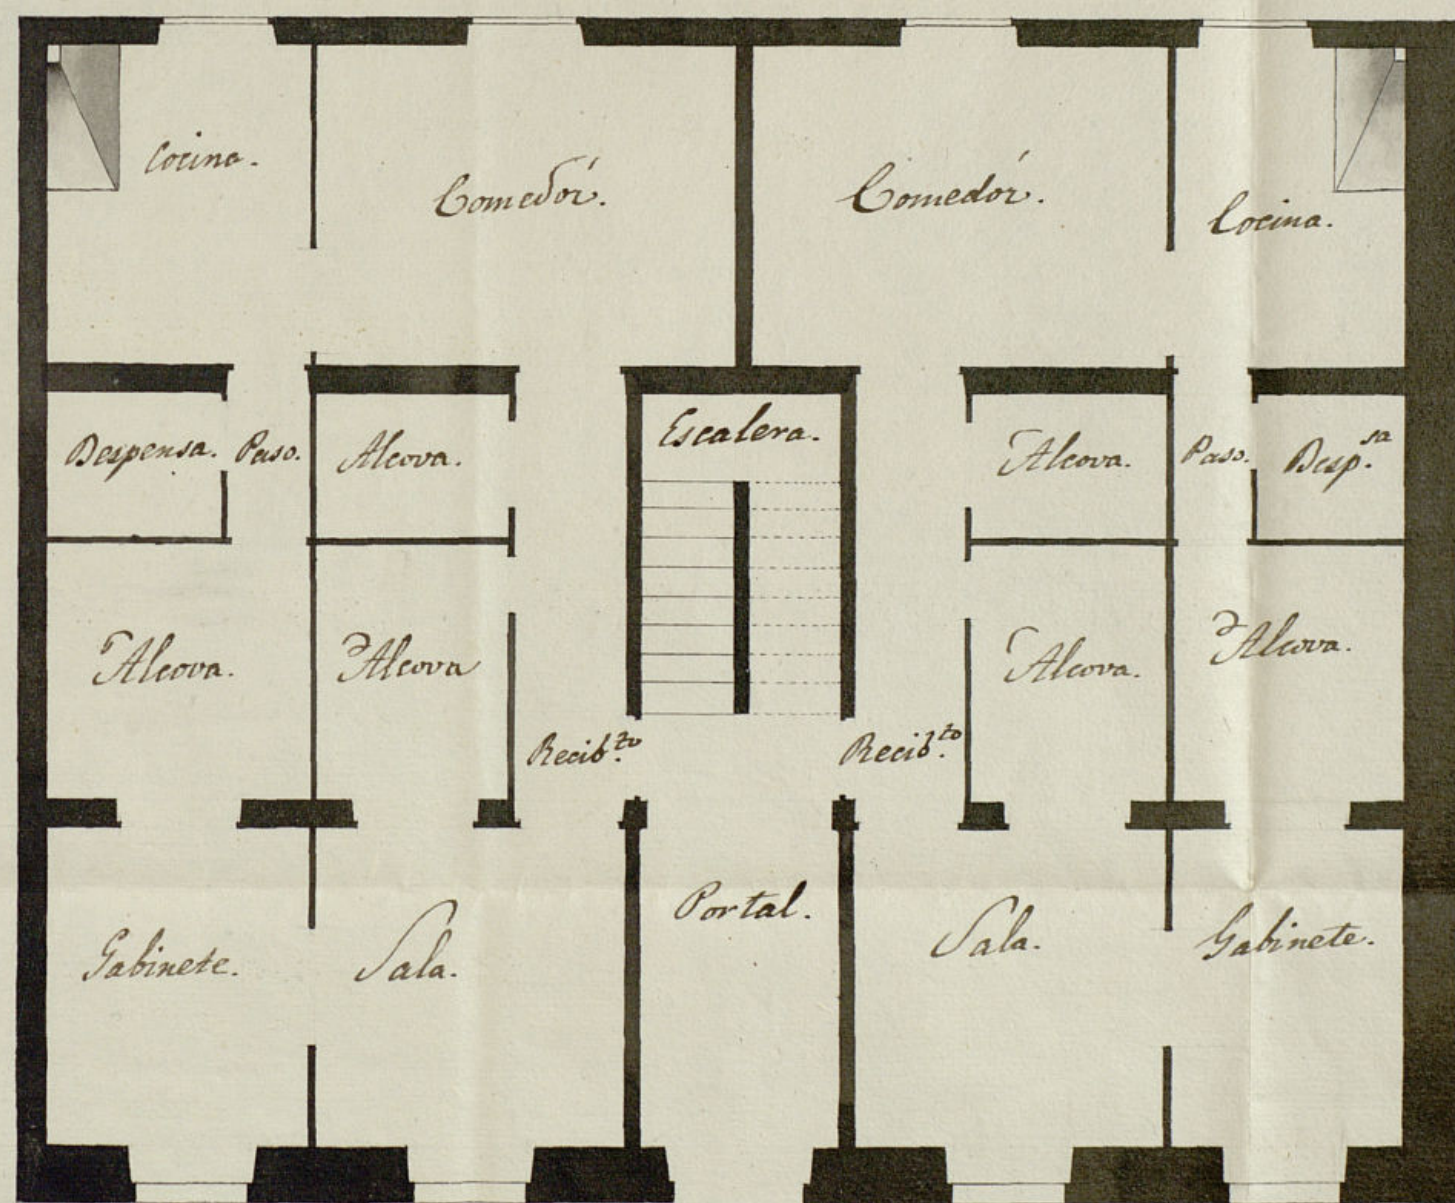 Cocina.
Comedór.
Comedór.
Cocina.
Despensa.
Paso.
Alcova.
Escalera.
Alcova.
Paso.
Desp.sa
Alcova.
Alcova
Alcova.
Alcova.
Recib.to
Recib.to
Gabinete.
Sala.
Portal.
Sala.
Gabinete.